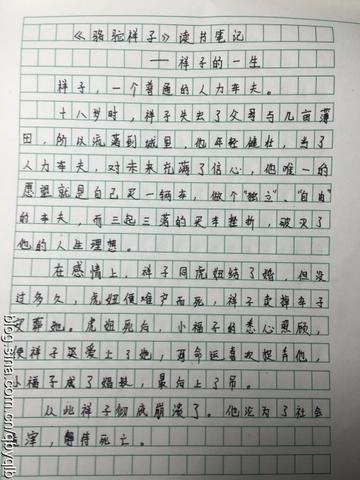 《骆驼祥子》读书笔记
——祥子的一生
祥子，一个普通的人力车夫。
十八岁时，祥子失去了父母与几亩薄
田，所以流落到城里，他年轻健壮，当了
人力车夫，对未来充满了信心，他唯一的
愿望就是自己买一辆车，做个"独立"、"自由"
的车夫，而三起三落的买车挫折，破灭了
他的人生理想。
在感情上，祥子同虎妞结了婚，但没
过多久，虎妞便难产而死，祥子卖掉车子
安葬她。虎妞死后，小福子的悉心照顾，
使祥子深爱上了她，可命运喜欢捉弄他，
小福子成了娼妓，最后上了吊。
从此祥子彻底崩溃了。他沦为了社会
渣滓，等待死亡。
blog.sina.com.cn/qbyqlb